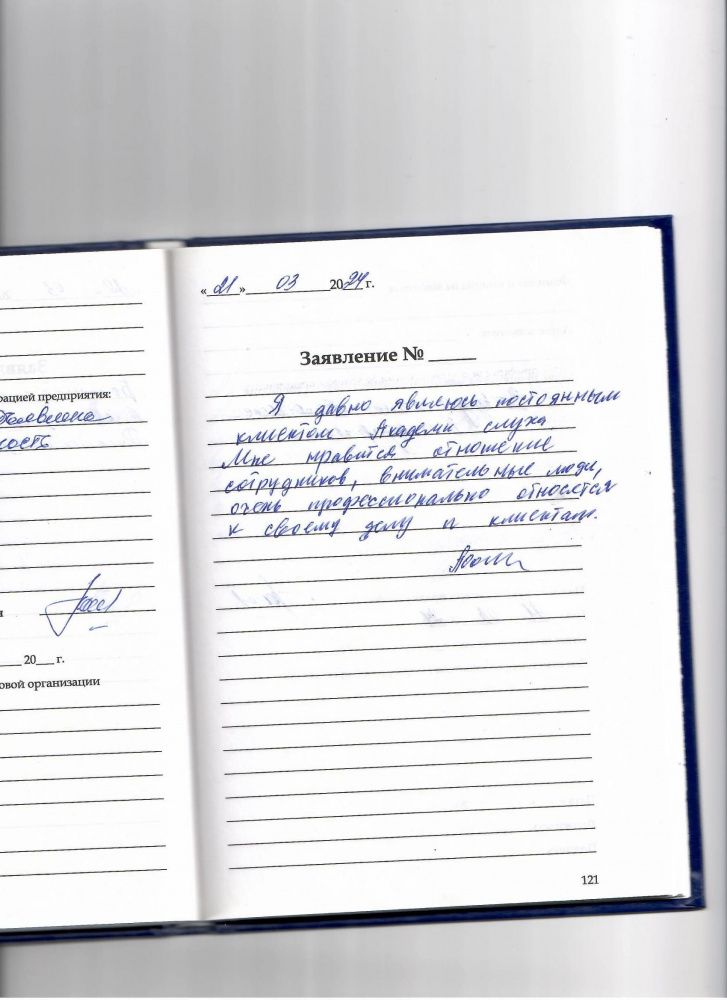 рацией предприятия:
20___ г.
овой организации
«21» 03 2024 г.
Заявление № ____
Я давно являюсь постоянным
клиентом Академи слуха.
Мне нравится отношение
сотрудников, внимательные люди,
очень профессионально относятся
к своему делу и клиентам.
121